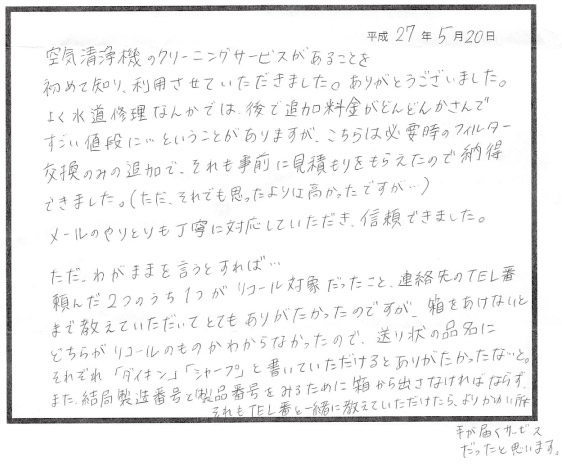 平成 27 年 5 月 20 日
空気清浄機のクリーニングサービスがあることを
初めて知り、利用させていただきました。ありがとうございました。
よく水道修理なんかでは、後で追加料金がどんどんかさんで
すごい値段に…ということがありますが、こちらは必要時のフィルター
交換のみの追加で、それも事前に見積もりをもらえたので納得
できました。(ただ、それでも思ったよりは高かったですが…)
メールのやりとりも丁寧に対応していただき、信頼できました。
ただ、わがままを言うとすれば…
頼んだ2つのうち1つがリコール対象だったこと、連絡先のTEL番
まで教えていただいてとてもありがたかったのですが、箱をあけないと
どちらがリコールのものかわからなかったので、送り状の品名に
それぞれ「ダイキン」「シャープ」と書いていただけるとありがたかったな…と。
また、結局製造番号と製品番号をみるために箱から出さなければならず、
それもTEL番と一緒に教えていただけたら、よりかゆい所
手が届くサービス
だったと思います。